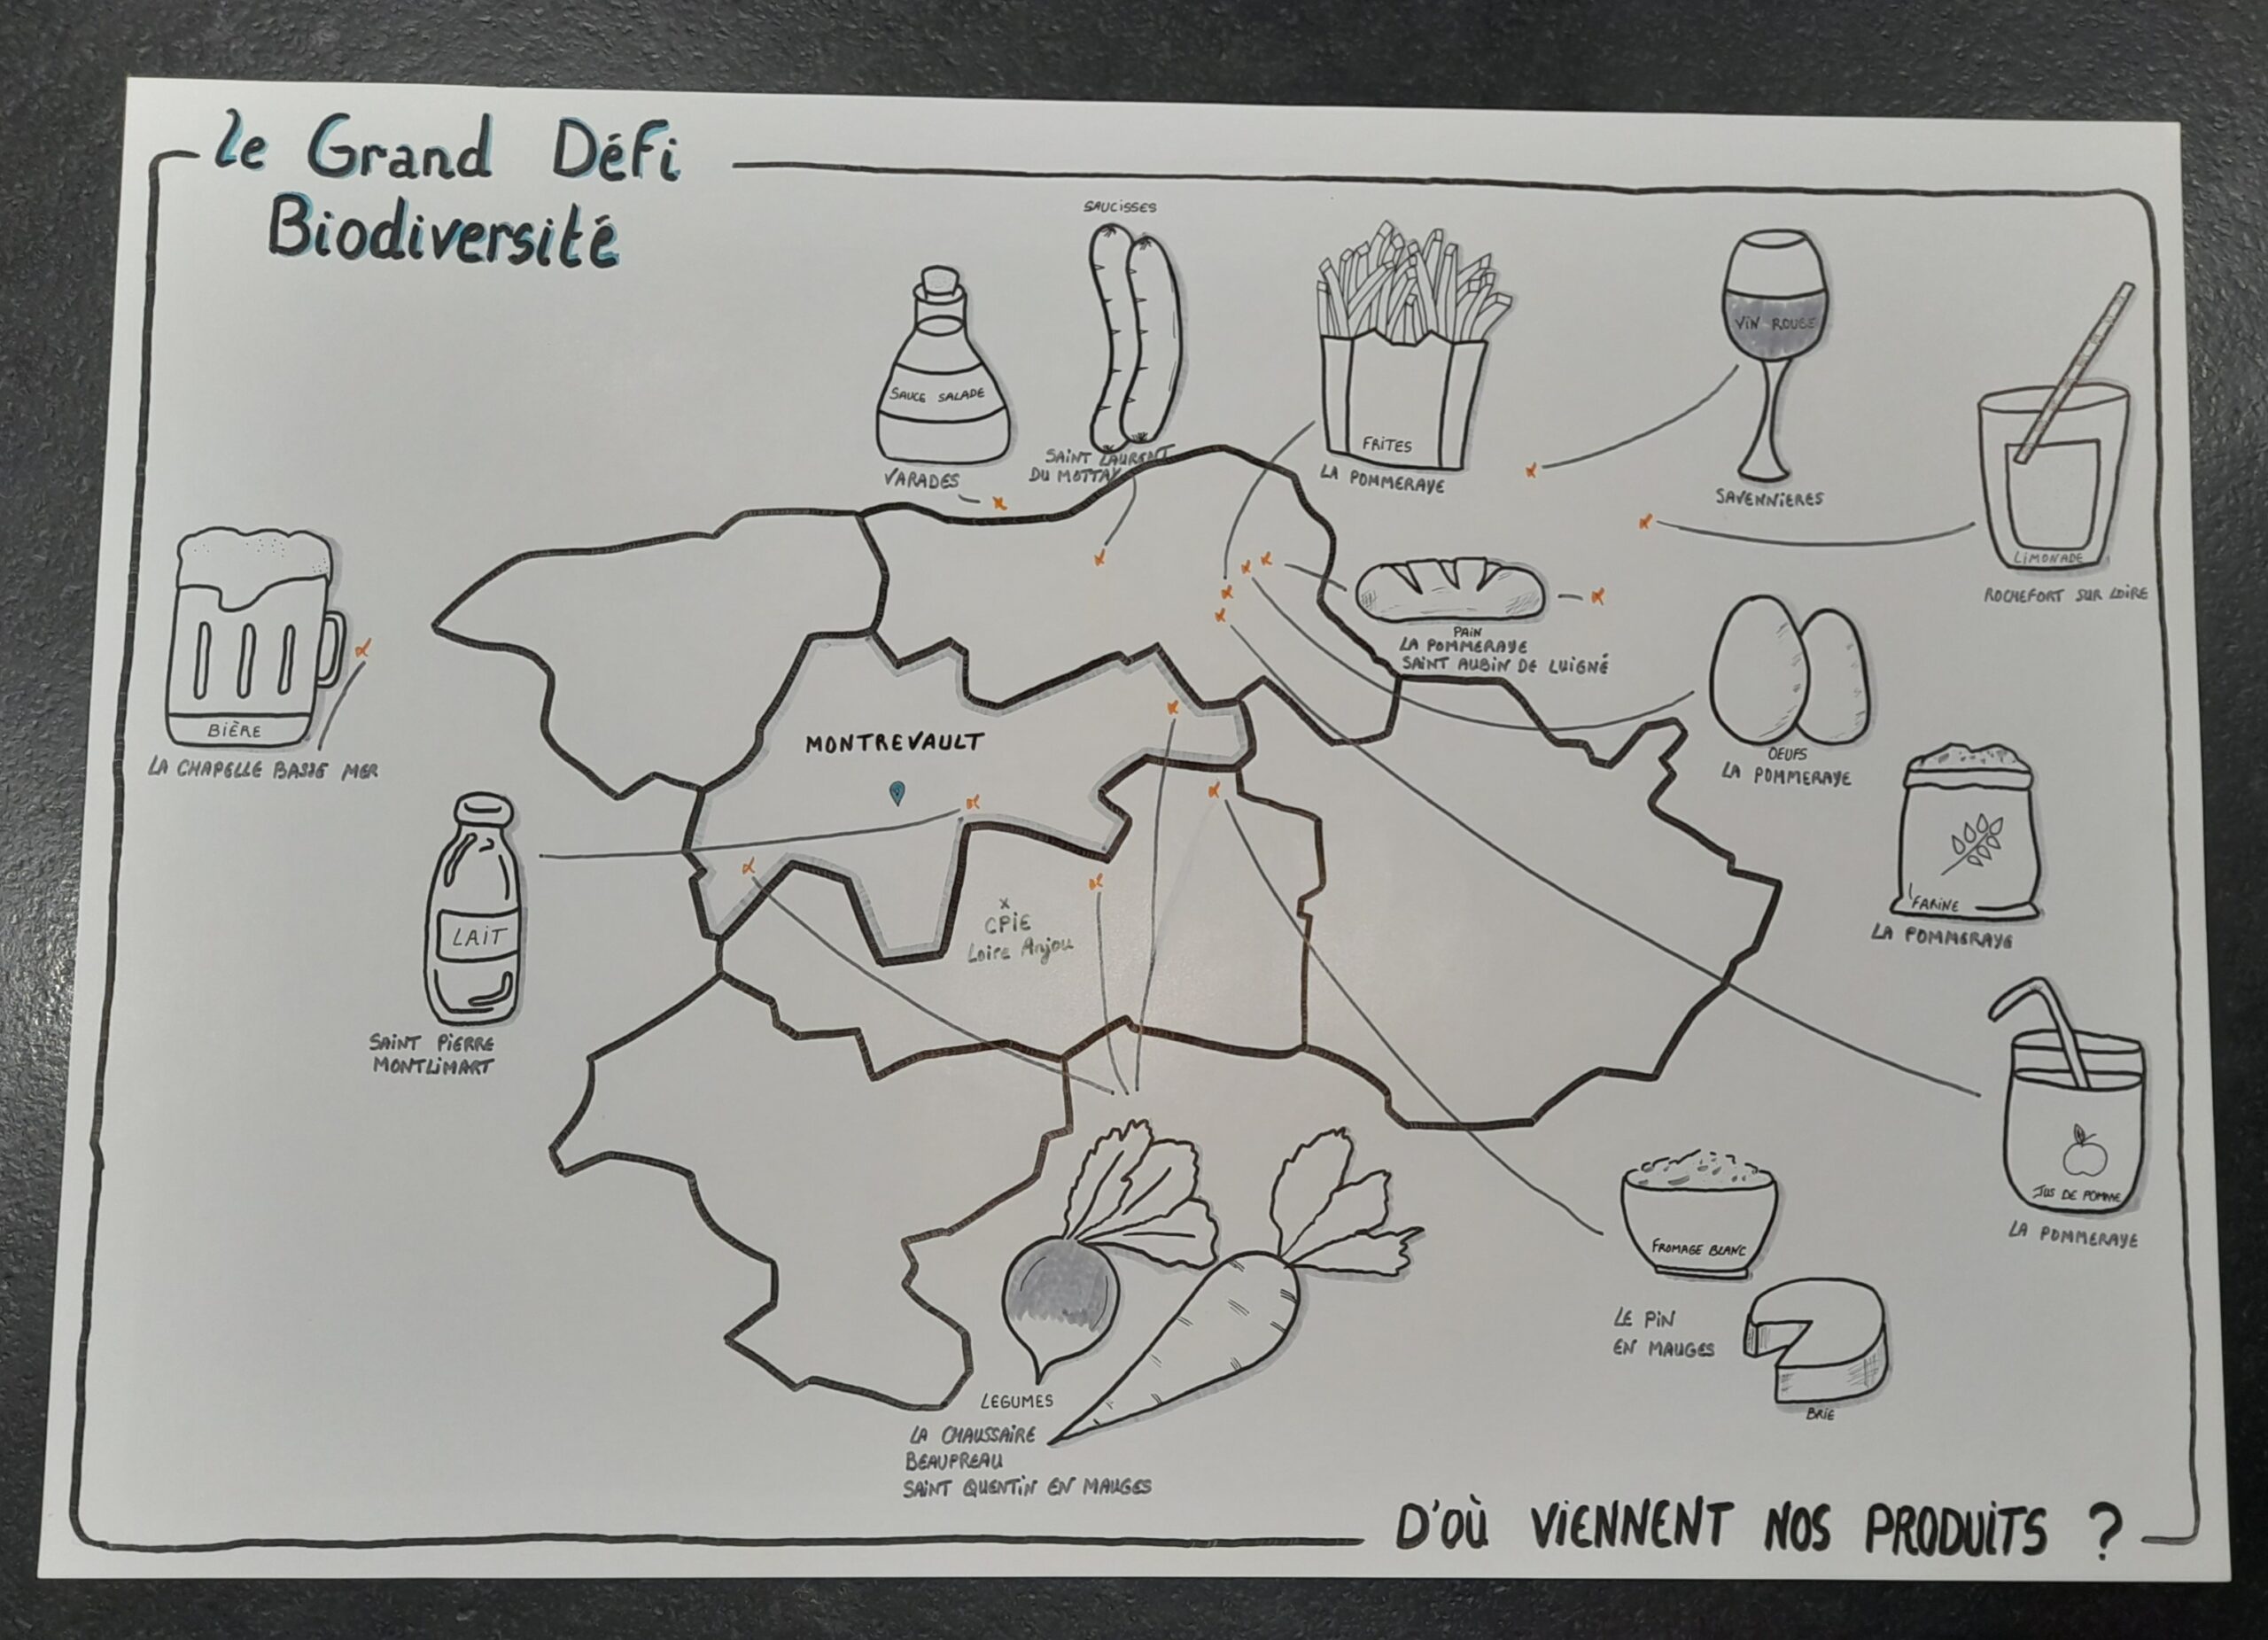 Le Grand Défi
Biodiversité
SAUCISSES
SAUCE SALADE
VARADES
SAINT LAURENT
DU MOTTAY
FRITES
LA POMMERAYE
VIN ROUGE
SAVENNIERES
LIMONADE
ROCHEFORT SUR LOIRE
PAIN
LA POMMERAYE
SAINT AUBIN DE LUIGNÉ
BIÈRE
LA CHAPELLE BASSE MER
MONTREVAULT
OEUFS
LA POMMERAYE
FARINE
LA POMMERAYE
LAIT
SAINT PIERRE
MONTLIMART
x
CPIE
Loire Anjou
JUS DE POMME
LA POMMERAYE
FROMAGE BLANC
LE PIN
EN MAUGES
BRIE
LEGUMES
LA CHAUSSAIRE
BEAUPREAU
SAINT QUENTIN EN MAUGES
D'OÙ VIENNENT NOS PRODUITS ?